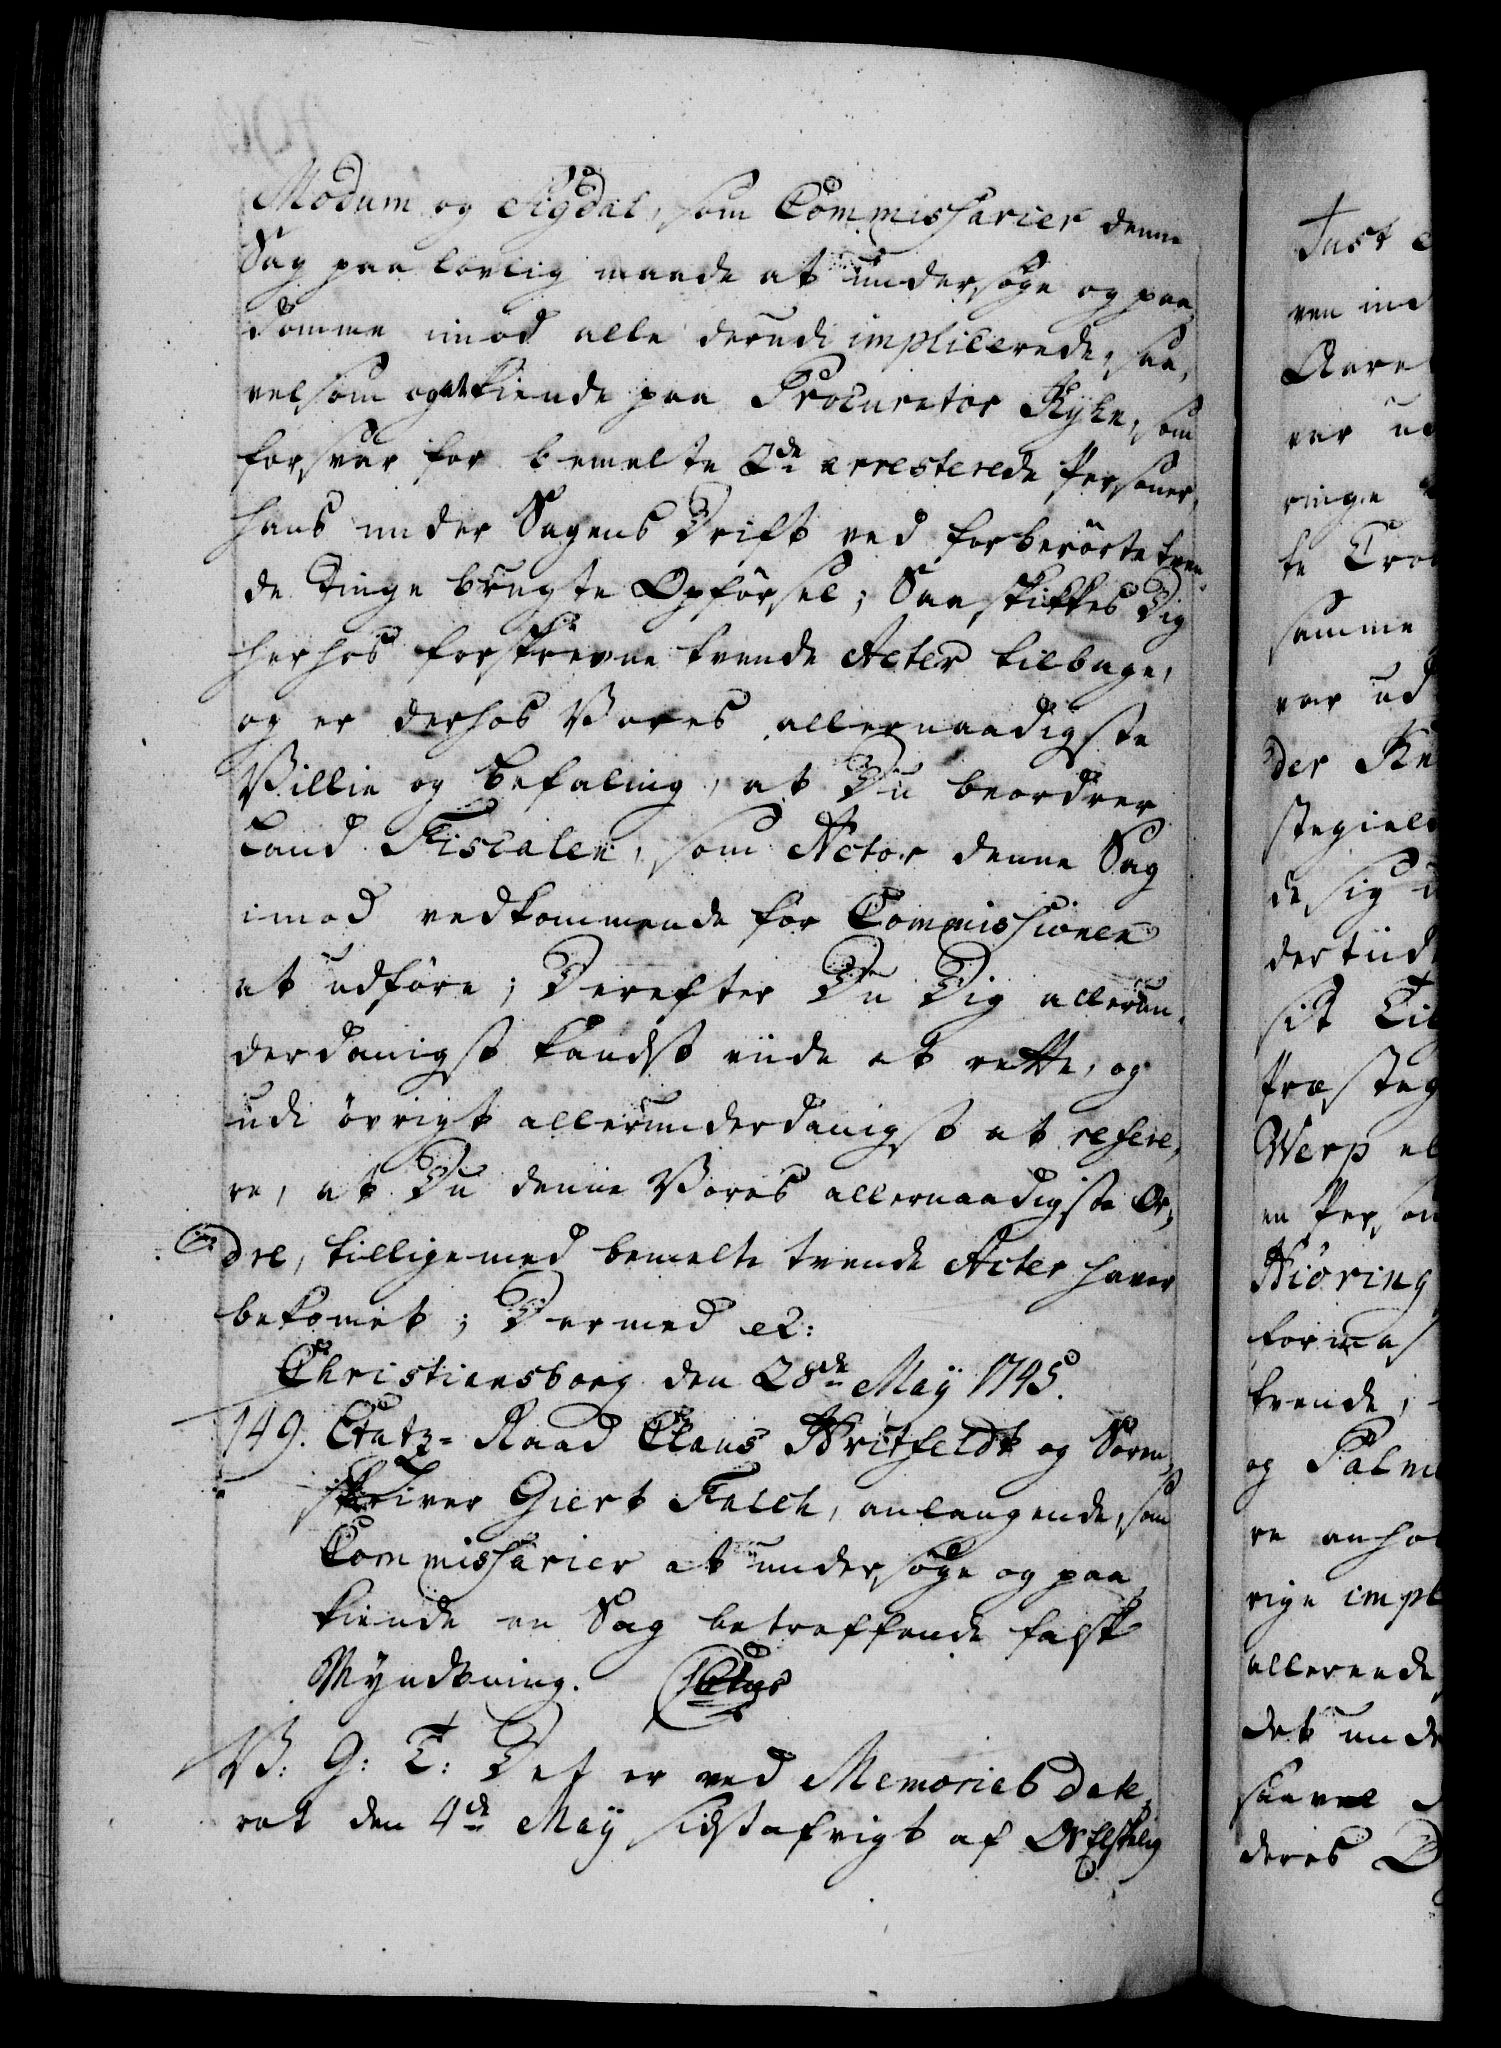 Modum og Sigdal, som Commissarier denne
Sag paa lovlig maade at undersøge og paa,
dømme imod alle derudi implicerede, saa,
velsom og at kiende paa Procurator Ryhe, som
forsvar for bemelte 2de arresterede Personer,
hans under Sagens Drift ved forberørte tven,
de Tinge brugte Opførsel; Saa skikkes Dig
herhos forskrevne tvende Acter tilbage,
og er derhos Vores allernaadigste
Villie og Befaling, at Du beordrer
Land Fiscalen, som Actor denne Sag
imod vedkommende for Commissionen
at udføre; Derefter Du Dig allerun,
derdanigst kandst viide at rette, og
udi øvrigt allerunderdanigst at refere,
re, at Du denne Vores allernaadigste Or,
dre, tilligemed bemelte tvende Acter haver
bekomet; Dermed etc:
Christiansborg den 28de Maÿ 1745.
149. Etatz-Raad Claus Hvitfeldt og Soren,
skriver Giert Falch, anlangende, som
Commissarier at undersøge og paa,
kiende en Sag betreffende falsk
Myndtning.
V: G: T: Det er ved Memorial date,
rat den 4de Maÿ sidstafvigt af Os Elskelig
Just
ven ind
var
ringe
te
samme
var ud
der
de sig
sit
Werp
en Person
Hiøring
tvende,
og
rige impl
allerede
det unde
saavel
deres